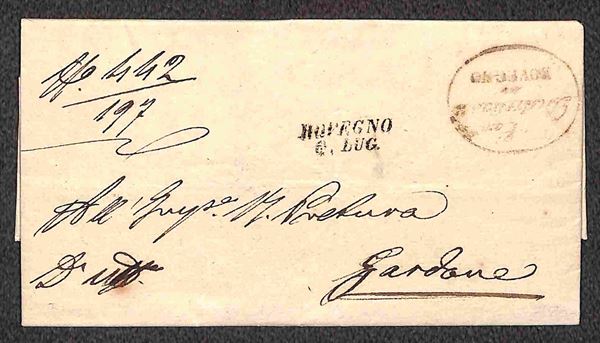 No. 442
197
BOVEGNO
6. LUG.
BOVEGNO
All' Imp. R. Pretura
D'uff.
Gardone